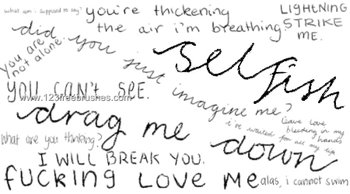 what am i supposed to say?
you're thickening
the air i'm breathing
LIGHTNING
STRIKE
ME.
you are
not alone.
did you just imagine me?
selfish
you can't see.
www.123freebrushes.com
drag me
down
Gave love
bleeding in my
hands
i've waited for all my life
what are you thinking?
I WILL BREAK YOU.
FUCKING LOVE ME
alas, i cannot swim